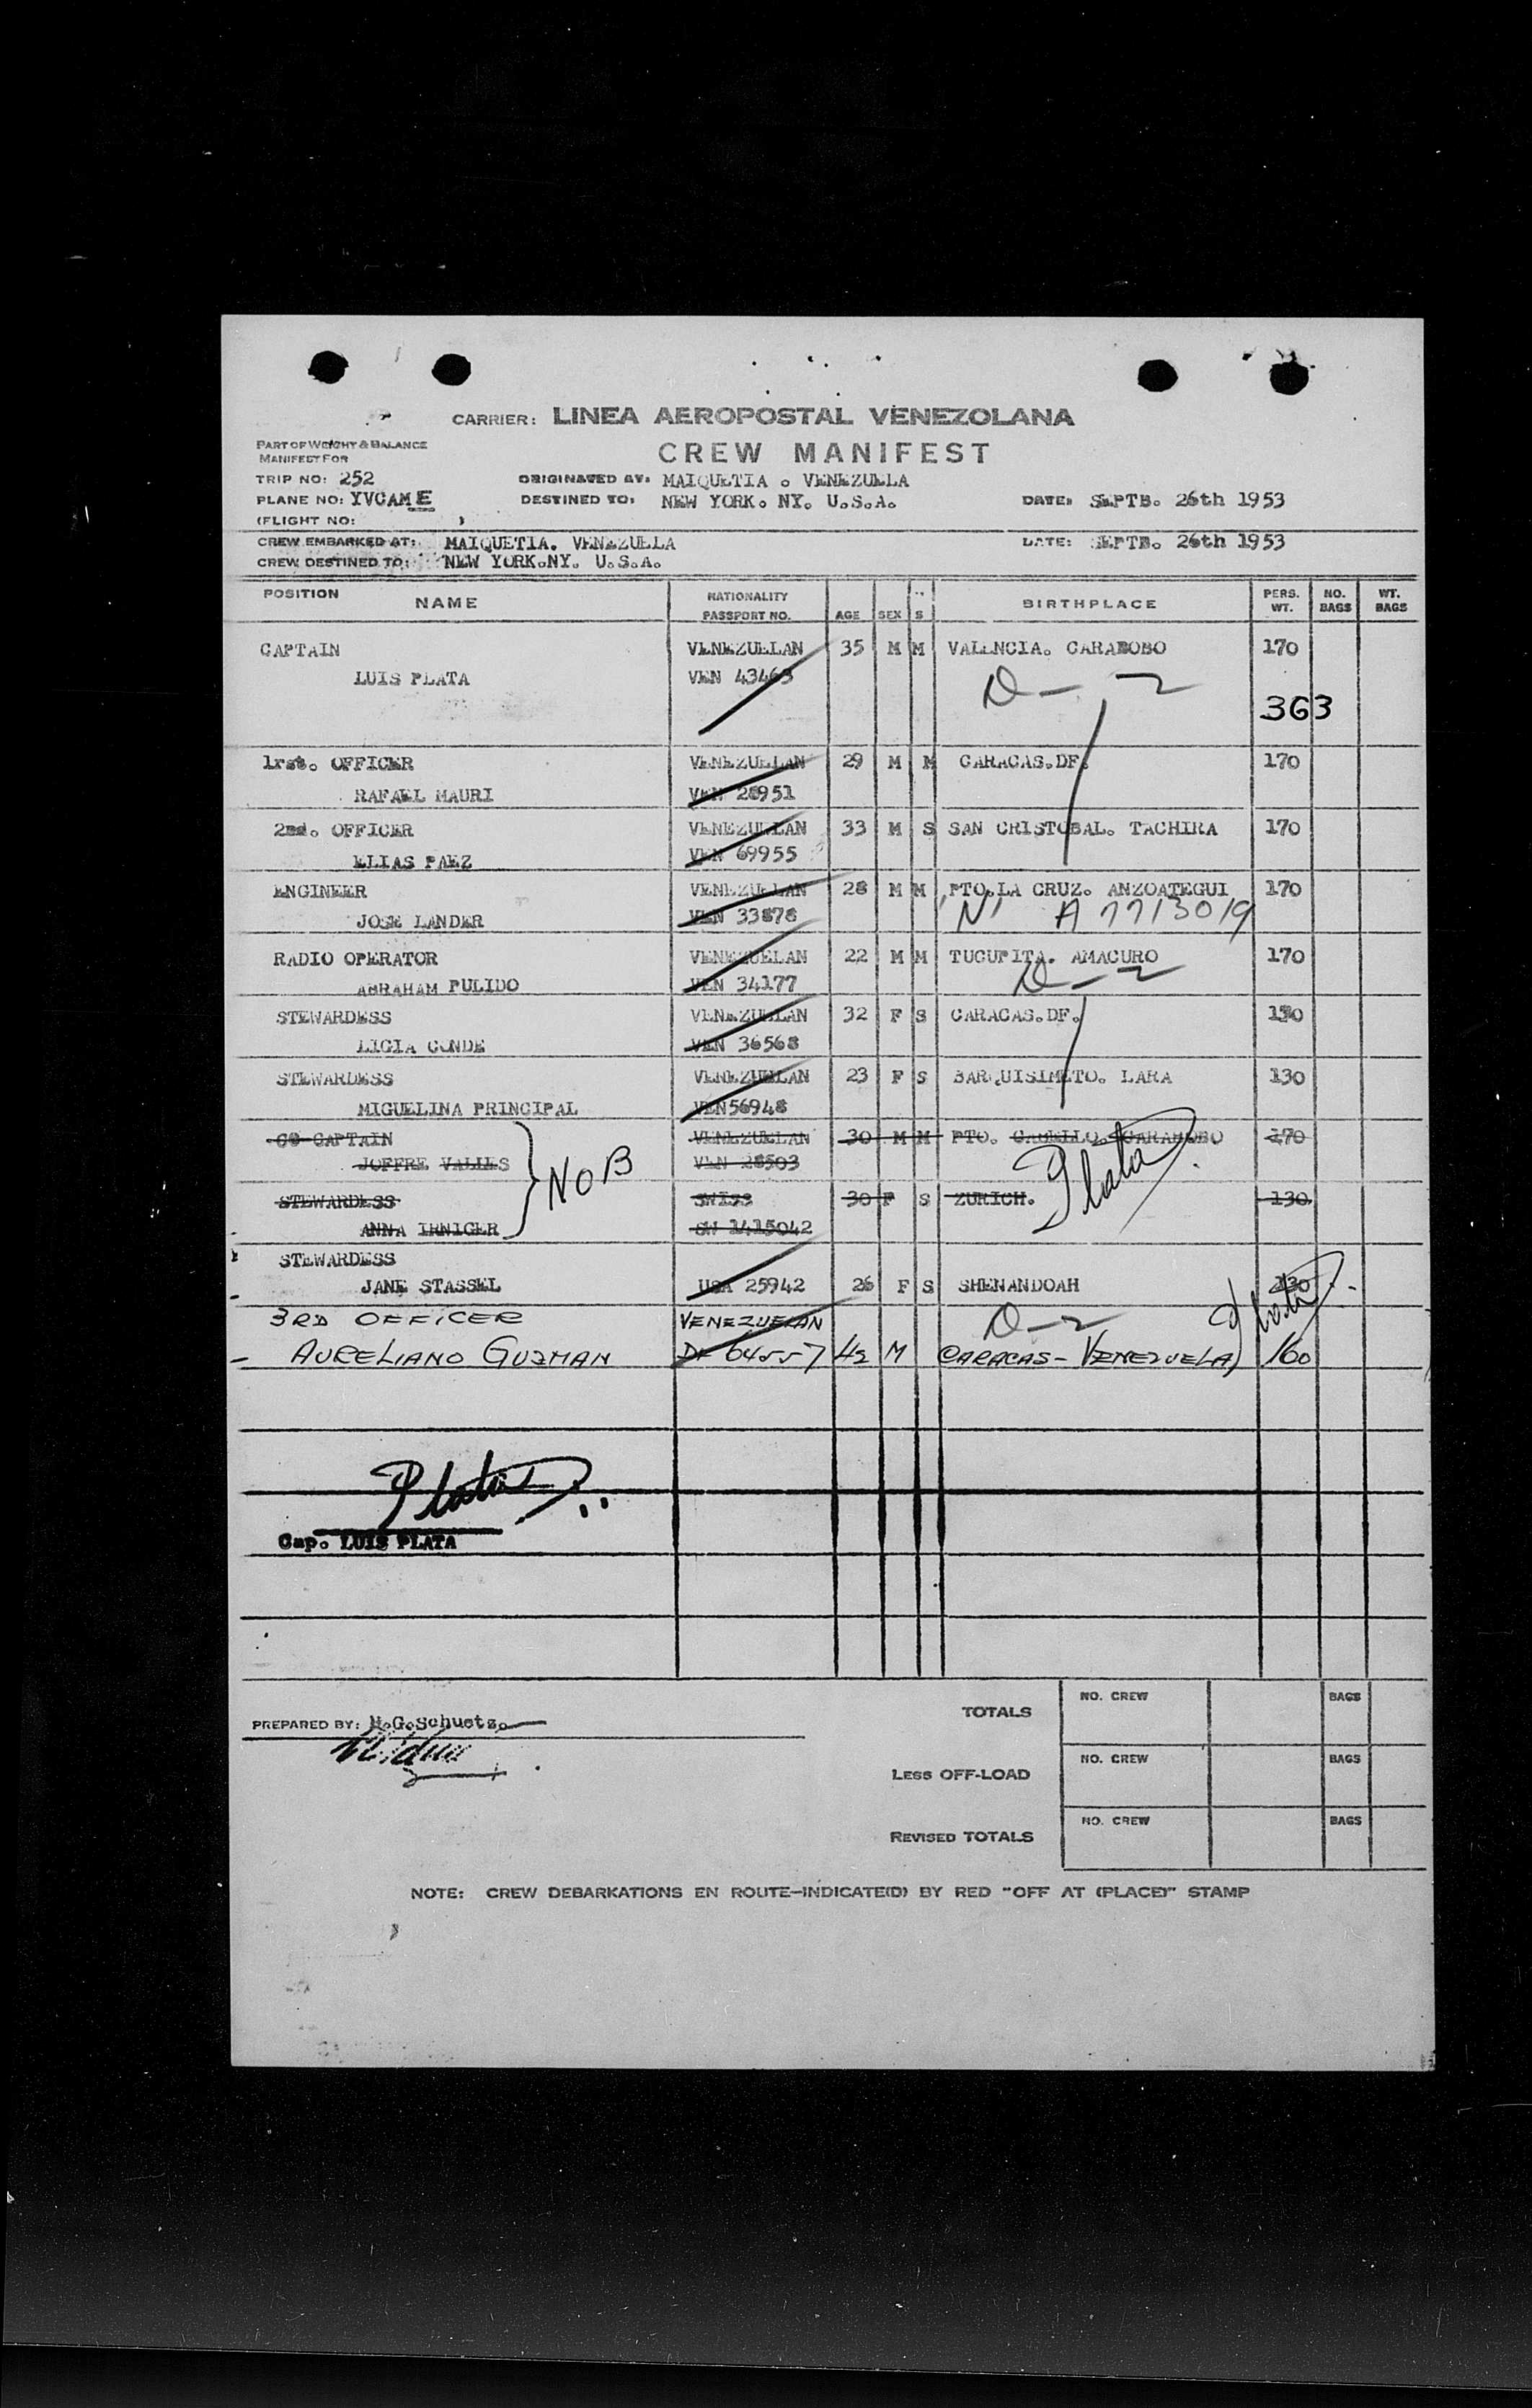 CARRIER: LINEA AEROPOSTAL VENEZOLANA
PART OF WEIGHT & BALANCE
MANIFEST FOR
CREW MANIFEST
TRIP NO: 252 ORIGINATED AT: MAIQUETIA . VENEZUELA
PLANE NO: YVCAME DESTINED TO: NEW YORK. NY. U.S.A. DATE: SEPTB. 26th 1953
(FLIGHT NO: )
CREW EMBARKED AT: MAIQUETIA. VENEZUELA DATE: SEPTB. 26th 1953
CREW DESTINED TO: NEW YORK.NY. U.S.A.
POSITION NAME NATIONALITY PASSPORT NO. AGE SEX S BIRTHPLACE PERS. WT. NO. BAGS WT. BAGS
CAPTAIN VENEZUELAN 35 M M VALENCIA. CARABOBO 170
LUIS PLATA VEN 43463 D-2
363
1rst. OFFICER VENEZUELAN 29 M M CARACAS.DF. 170
RAFAEL MAURI VEN 28951
2nd. OFFICER VENEZUELAN 33 M S SAN CRISTOBAL. TACHIRA 170
ELIAS PAEZ VEN 69955
ENGINEER VENEZUELAN 28 M M PTO.LA CRUZ. ANZOATEGUI 170
JOSE LANDER VEN 33878 A 7713019
RADIO OPERATOR VENEZUELAN 22 M M TUCUPITA. AMACURO 170
ABRAHAM PULIDO VEN 34177 D-2
STEWARDESS VENEZUELAN 32 F S CARACAS.DF. 130
LIGIA CONDE VEN 36568
STEWARDESS VENEZUELAN 23 F S BARQUISIMETO. LARA 130
MIGUELINA PRINCIPAL VEN56948
CO CAPTAIN VENEZUELAN 30 M M PTO. CABELLO. CARABOBO 170
JOFFRE VALLES VEN 28503
NOB Plata
STEWARDESS SWISS 30 F S ZURICH. 130
ANNA IRNIGER SW 1415042
STEWARDESS
JANE STASSEL USA 25942 26 F S SHENANDOAH 130
Plata
3RD OFFICER VENEZUELAN D-2
AURELIANO GUZMAN DF 64557 42 M CARACAS-VENEZUELA 160
Plata
Cap. LUIS PLATA
PREPARED BY: H.G.Schuetz.
TOTALS NO. CREW BAGS
LESS OFF-LOAD NO. CREW BAGS
REVISED TOTALS NO. CREW BAGS
NOTE: CREW DEBARKATIONS EN ROUTE-INDICATE(D) BY RED "OFF AT (PLACE)" STAMP